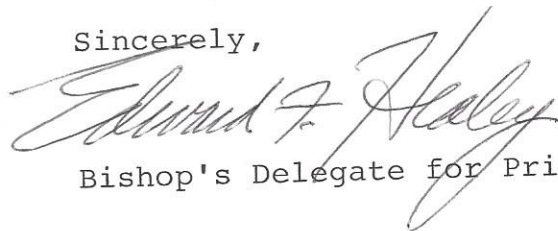 Sincerely,
Edward F. Healey
Bishop's Delegate for Pri